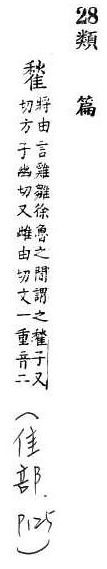 28
類篇
將由言雞雛徐魯之間謂之子又
切方子幽切又雌由切文一重音二
(隹部. P125)